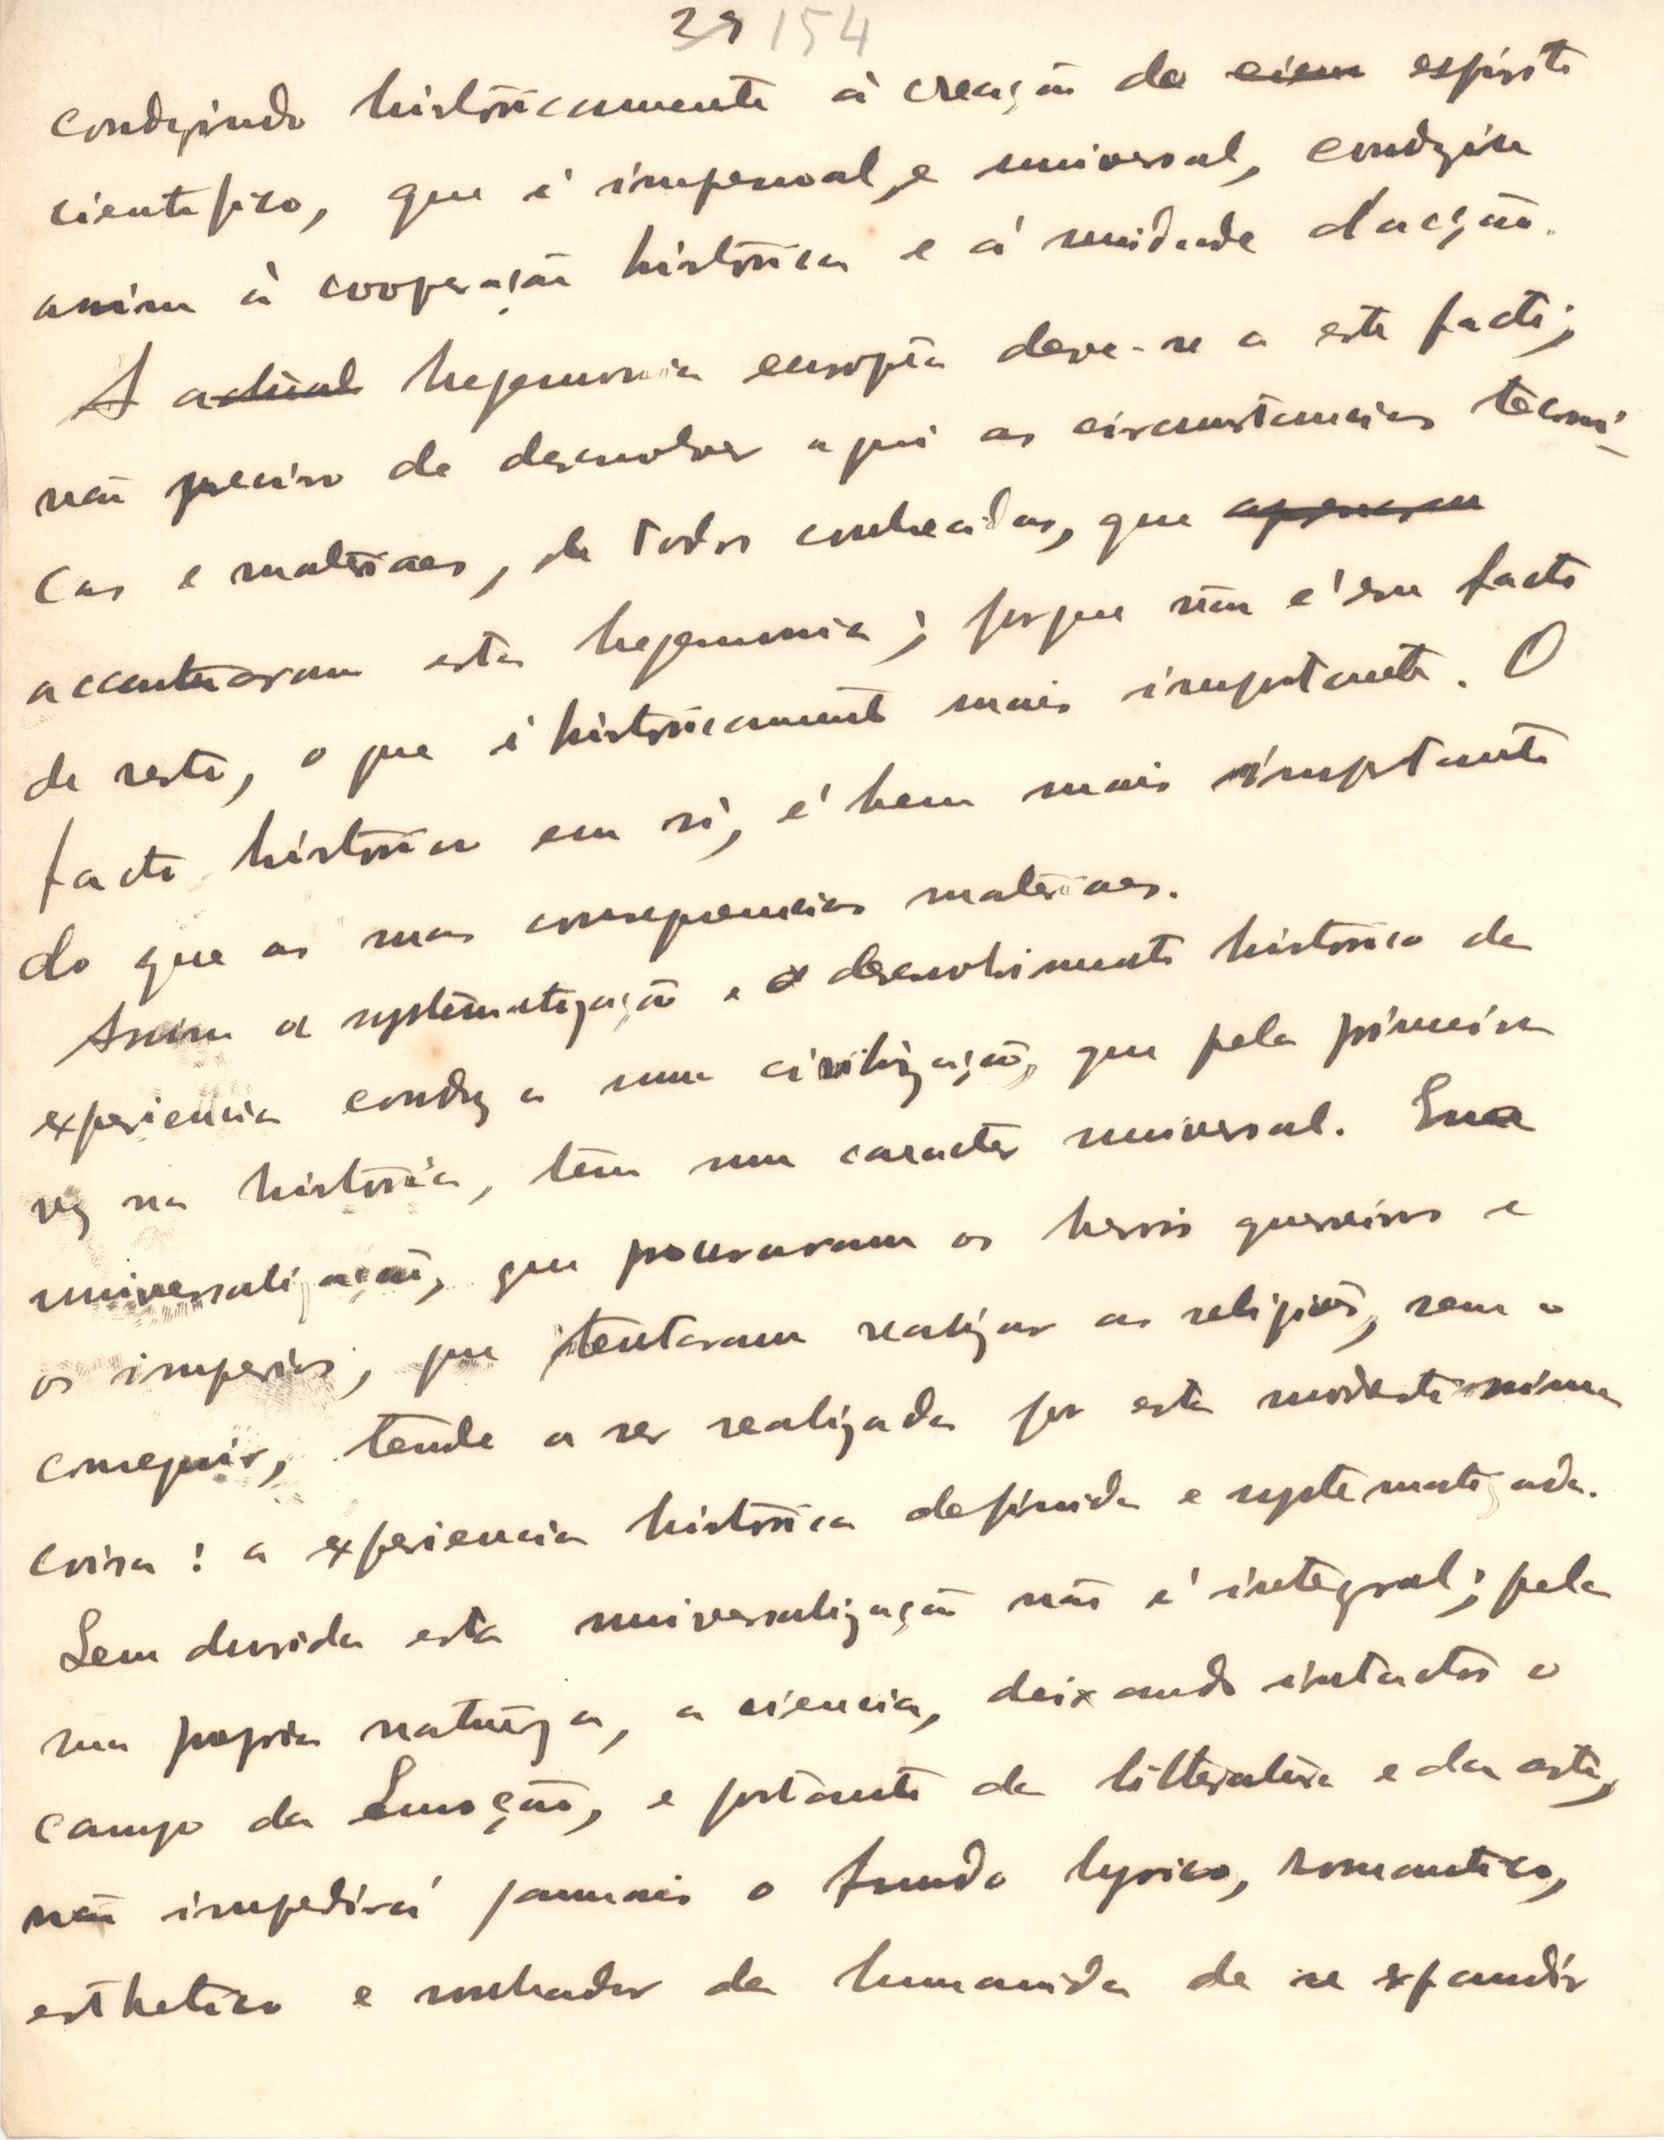 39 154
conduzindo historicamente à creação do cien espirito
scientifico, que é impessoal, e universal, conduziu
assim à cooperação historica e á unidade d'acção.
A actual hegemonia europêa deve-se a este facto;
não preciso de desenvolver aqui as circumstancias techni-
cas e materiaes, de todos conhecidas, que
accentuaram esta hegemonia; porque não é esse facto
de resto, o que é historicamente mais importante. O
facto historico em si, é bem mais importante
do que as suas consequencias materiaes.
Assim a systematização e o desenvolvimento historico da
experiencia conduz a uma civilização, que pela primeira
vez na historia, tem um caracter universal. Essa
universalização, que procuraram os heróis guerreiros e
os imperios, que tentaram realizar as religiões, sem o
conseguir, tende a ser realizada por esta modestissima
coisa: a experiencia historica definida e systematizada.
Sem duvida esta universalização não é integral; pela
sua propria natureza, a sciencia, deixando intactos o
campo da Emoção, e portanto da litteratura e da arte,
não impedirá jamais o fundo lyrico, romantico,
esthetico e sonhador da humanidade de se expandir